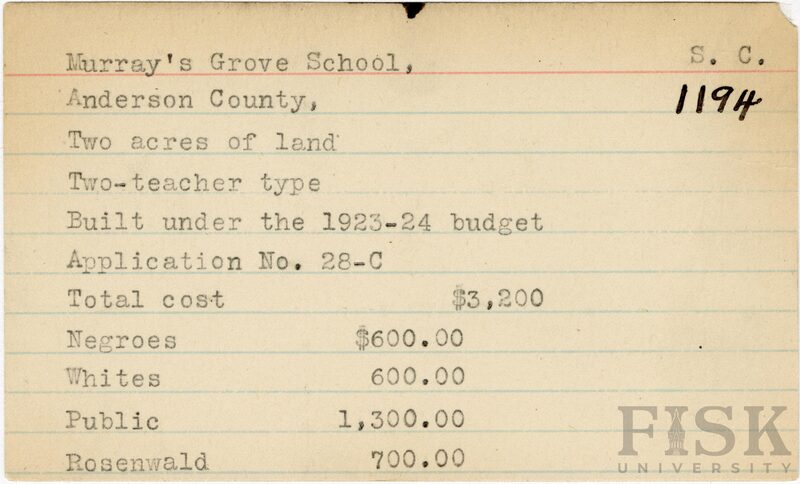 Murray's Grove School, S. C.
Anderson County, 1194
Two acres of land
Two-teacher type
Built under the 1923-24 budget
Application No. 28-C
Total cost $3,200
Negroes $600.00
Whites 600.00
Public 1,300.00
Rosenwald 700.00
FISK
UNIVERSITY